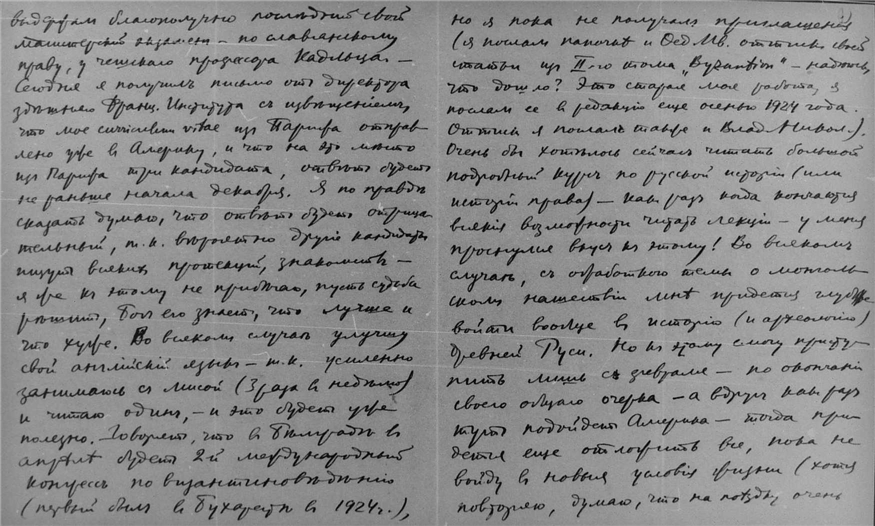 выдержал благополучно последній свой
магистерскій экзамен – по славянскому
праву, у чешскаго профессора Кадльца. –
Сегодня я получилъ письмо отъ директора
здѣшняго Франц. Института съ извѣщеніемъ,
что мое curriculum vitae изъ Парижа отправ
лено уже в Америку, и что на это мѣсто
изъ Парижа три кандидата, отвѣтъ будетъ
не раньше начала декабря. Я по правдѣ
сказать думаю, что отвѣтъ будетъ отрица
тельный, т.к. вѣроятно другіе кандидаты
ищутъ всяких протекцій, знакомств –
я же къ этому не прибѣгаю, пусть судьба
рѣшитъ, Богъ его знаетъ, что лучше и
что хуже. Во всяком случаѣ улучшу
свой англійскій языкъ – т.к. усиленно
занимаюсь съ мисой (3 раза в недѣлю)
и читаю одинъ, – и это будетъ уже
полезно. Говорятъ, что в Бѣлградѣ в
апрѣлѣ будетъ 2й международный
конгрессъ по византиновѣдѣнію
(первый былъ в Бухарестѣ в 1924 г.),
но я пока не получалъ приглашенія
(я послалъ папочкѣ и Фед. Ив. оттиски своей
статьи изъ II-го тома „Byzantion" – надѣюсь,
что дошло? Это старая моя работа, я
послал ее в редакцію еще осенью 1924 года.
Оттиски я послалъ также и Влад. Никол.).
Очень бы хотѣлось сейчасъ читать большой
подробный курсъ по русской исторіи (или
исторіи права) – какъ разъ когда кончаются
всякія возможности читать лекціи – у меня
проснулся вкусъ къ этому! Во всякомъ
случаѣ, съ обработкой темы о монголь
скомъ нашествіи мнѣ придется глубже
войти вообще в исторію (и археологію)
Древней Руси. Но къ этому смогу присту-
пить лишь съ февраля – по окончаніи
своего общаго очерка – а вдругъ какъ разъ
тутъ подойдетъ Америка – тогда при
дется еще отложить все, пока не
войду в новыя условія жизни (хотя
повторяю, думаю, что на поѣздку очень